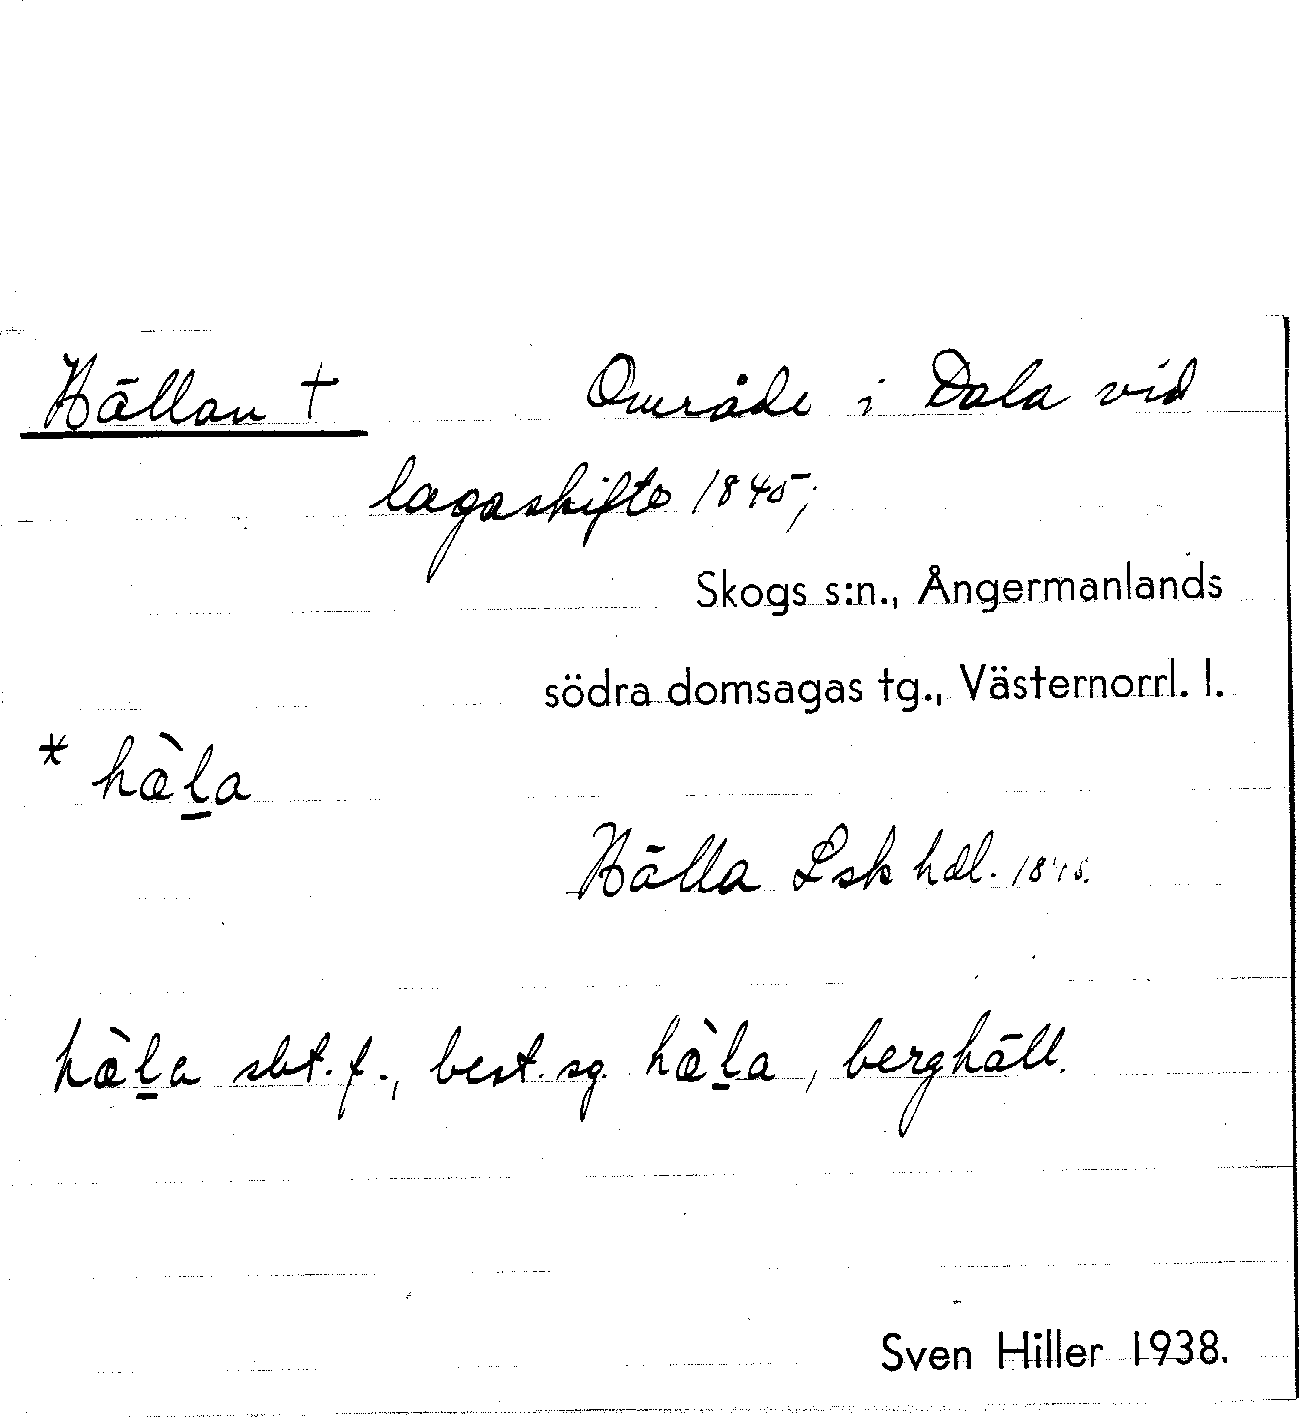 Hällan †   Område i Dala vid
lagaskifte 1845;
Skogs s:n., Ångermanlands
södra domsagas tg., Västernorrl. l.
* hæ̀l̲a
Hälla Lsk hdl. 1845.
hæ̀l̲a sbt. f., best. sg. hæ̀l̲a, berghäll.
Sven Hiller 1938.